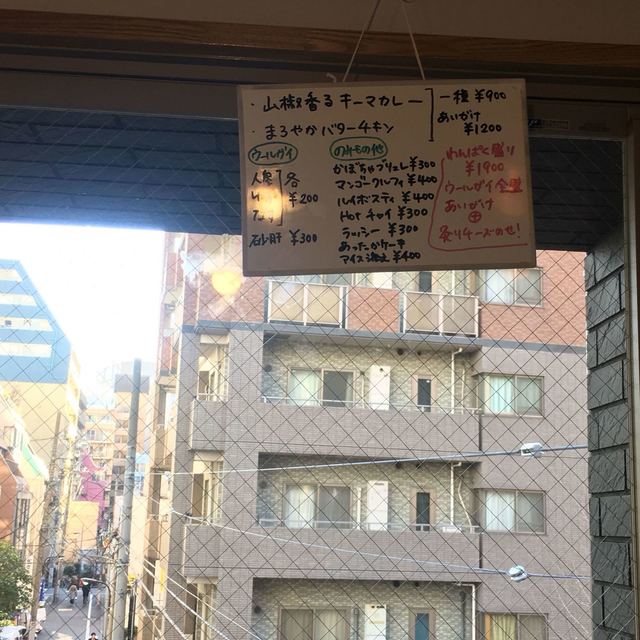 ・山椒香るキーマカレー
・まろやかバターチキン
一種 ¥900
あいがけ
¥1200
ウールガイ
人参
各
¥200
砂肝 ¥300
のみもの他
かぼちゃブリュレ ¥300
マンゴークルフィ ¥400
ルイボスティ ¥400
Hot チャイ ¥300
ラッシー ¥300
あったかケーキ
アイス添え ¥400
わんぱく盛り
¥1900
ウールガイ全盛
あいがけ
⊕
炙りチーズのせ!